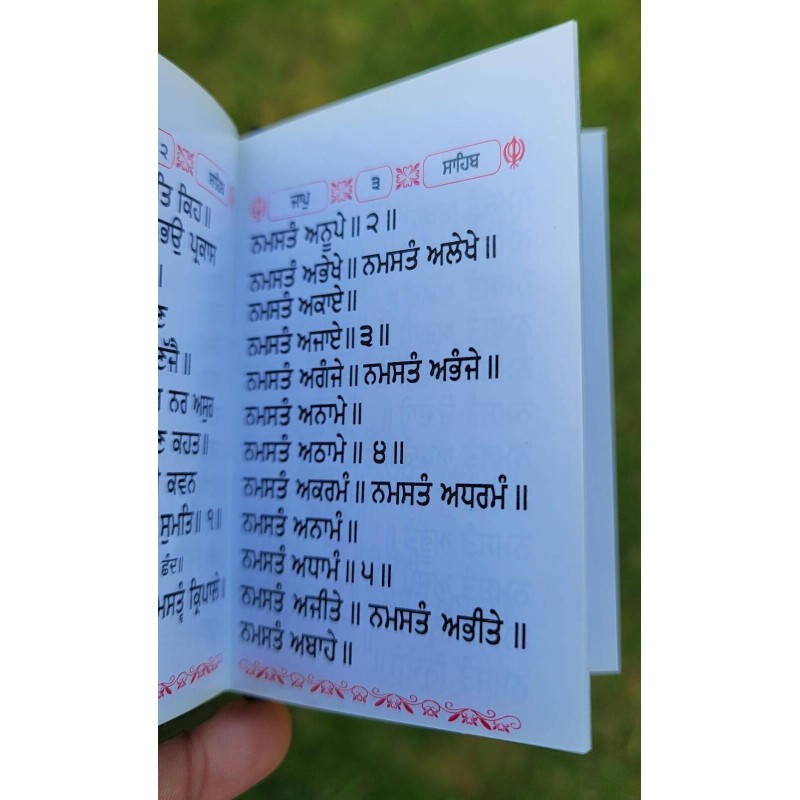 ੨ ਸਾਹਿਬ
ਤਿ ਕਿਹ॥
ਭਉ ਪ੍ਰਕਾਸ
॥
ਨਰ ਅਸੁਰ
ਕਹਤ॥
ਕਵਨ
ਸੁਮਤਿ॥ ੧॥
ਛੰਦ॥
ਮਸਤ੍ਵੰ ਕ੍ਰਿਪਾਲੇ॥
ਜਾਪੁ ੩ ਸਾਹਿਬ
ਨਮਸਤੰ ਅਨੂਪੇ॥ ੨॥
ਨਮਸਤੰ ਅਭੇਖੇ॥ ਨਮਸਤੰ ਅਲੇਖੇ॥
ਨਮਸਤੰ ਅਕਾਏ॥
ਨਮਸਤੰ ਅਜਾਏ॥ ੩॥
ਨਮਸਤੰ ਅਗੰਜੇ॥ ਨਮਸਤੰ ਅਭੰਜੇ॥
ਨਮਸਤੰ ਅਨਾਮੇ॥
ਨਮਸਤੰ ਅਠਾਮੇ॥ ੪॥
ਨਮਸਤੰ ਅਕਰਮੰ॥ ਨਮਸਤੰ ਅਧਰਮੰ॥
ਨਮਸਤੰ ਅਨਾਮੰ॥
ਨਮਸਤੰ ਅਧਾਮੰ॥ ੫॥
ਨਮਸਤੰ ਅਜੀਤੇ॥ ਨਮਸਤੰ ਅਭੀਤੇ॥
ਨਮਸਤੰ ਅਬਾਹੇ॥